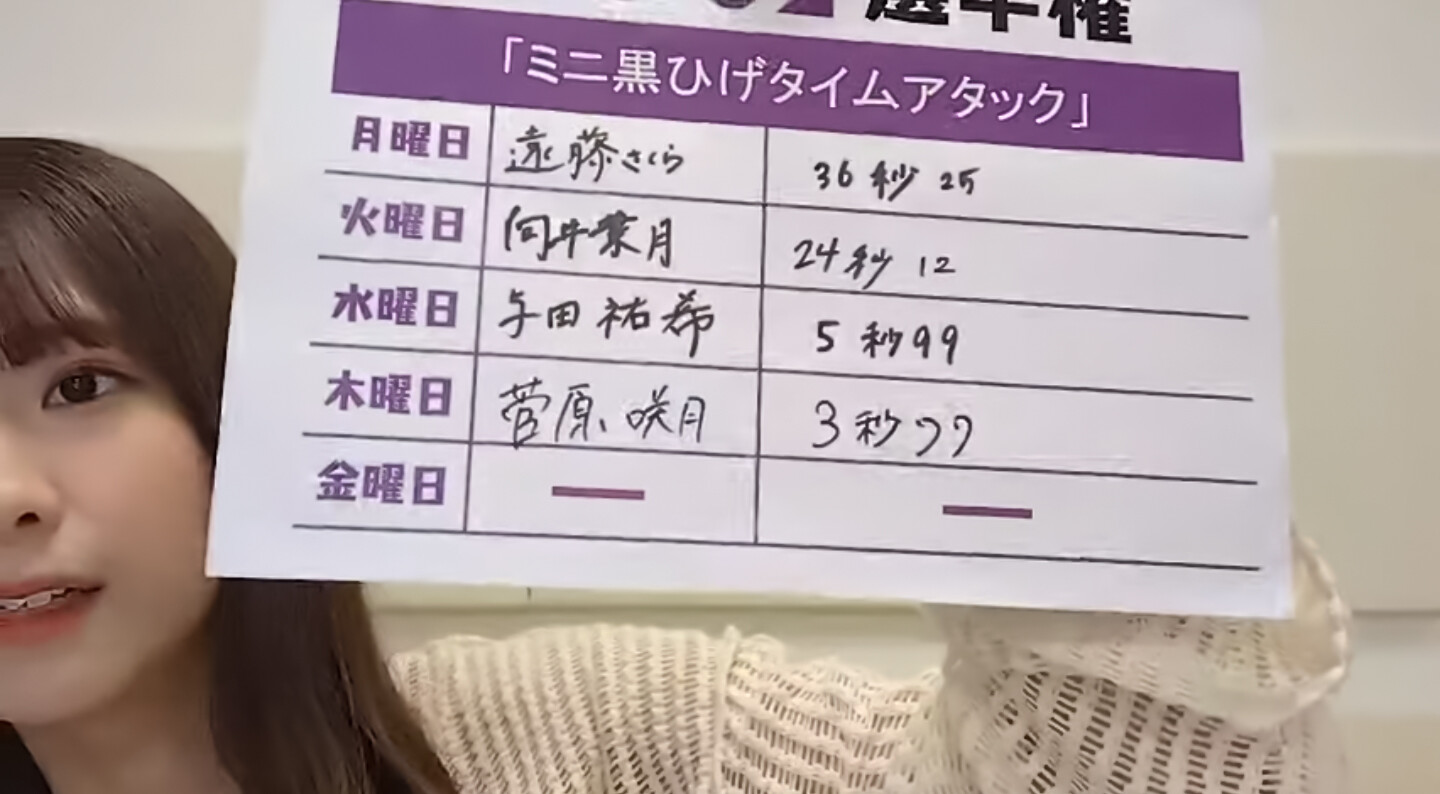 選手権
「ミニ黒ひげタイムアタック」
月曜日 遠藤さくら 36秒25
火曜日 向井葉月 24秒12
水曜日 与田祐希 5秒99
木曜日 菅原咲月 3秒77
金曜日 — —